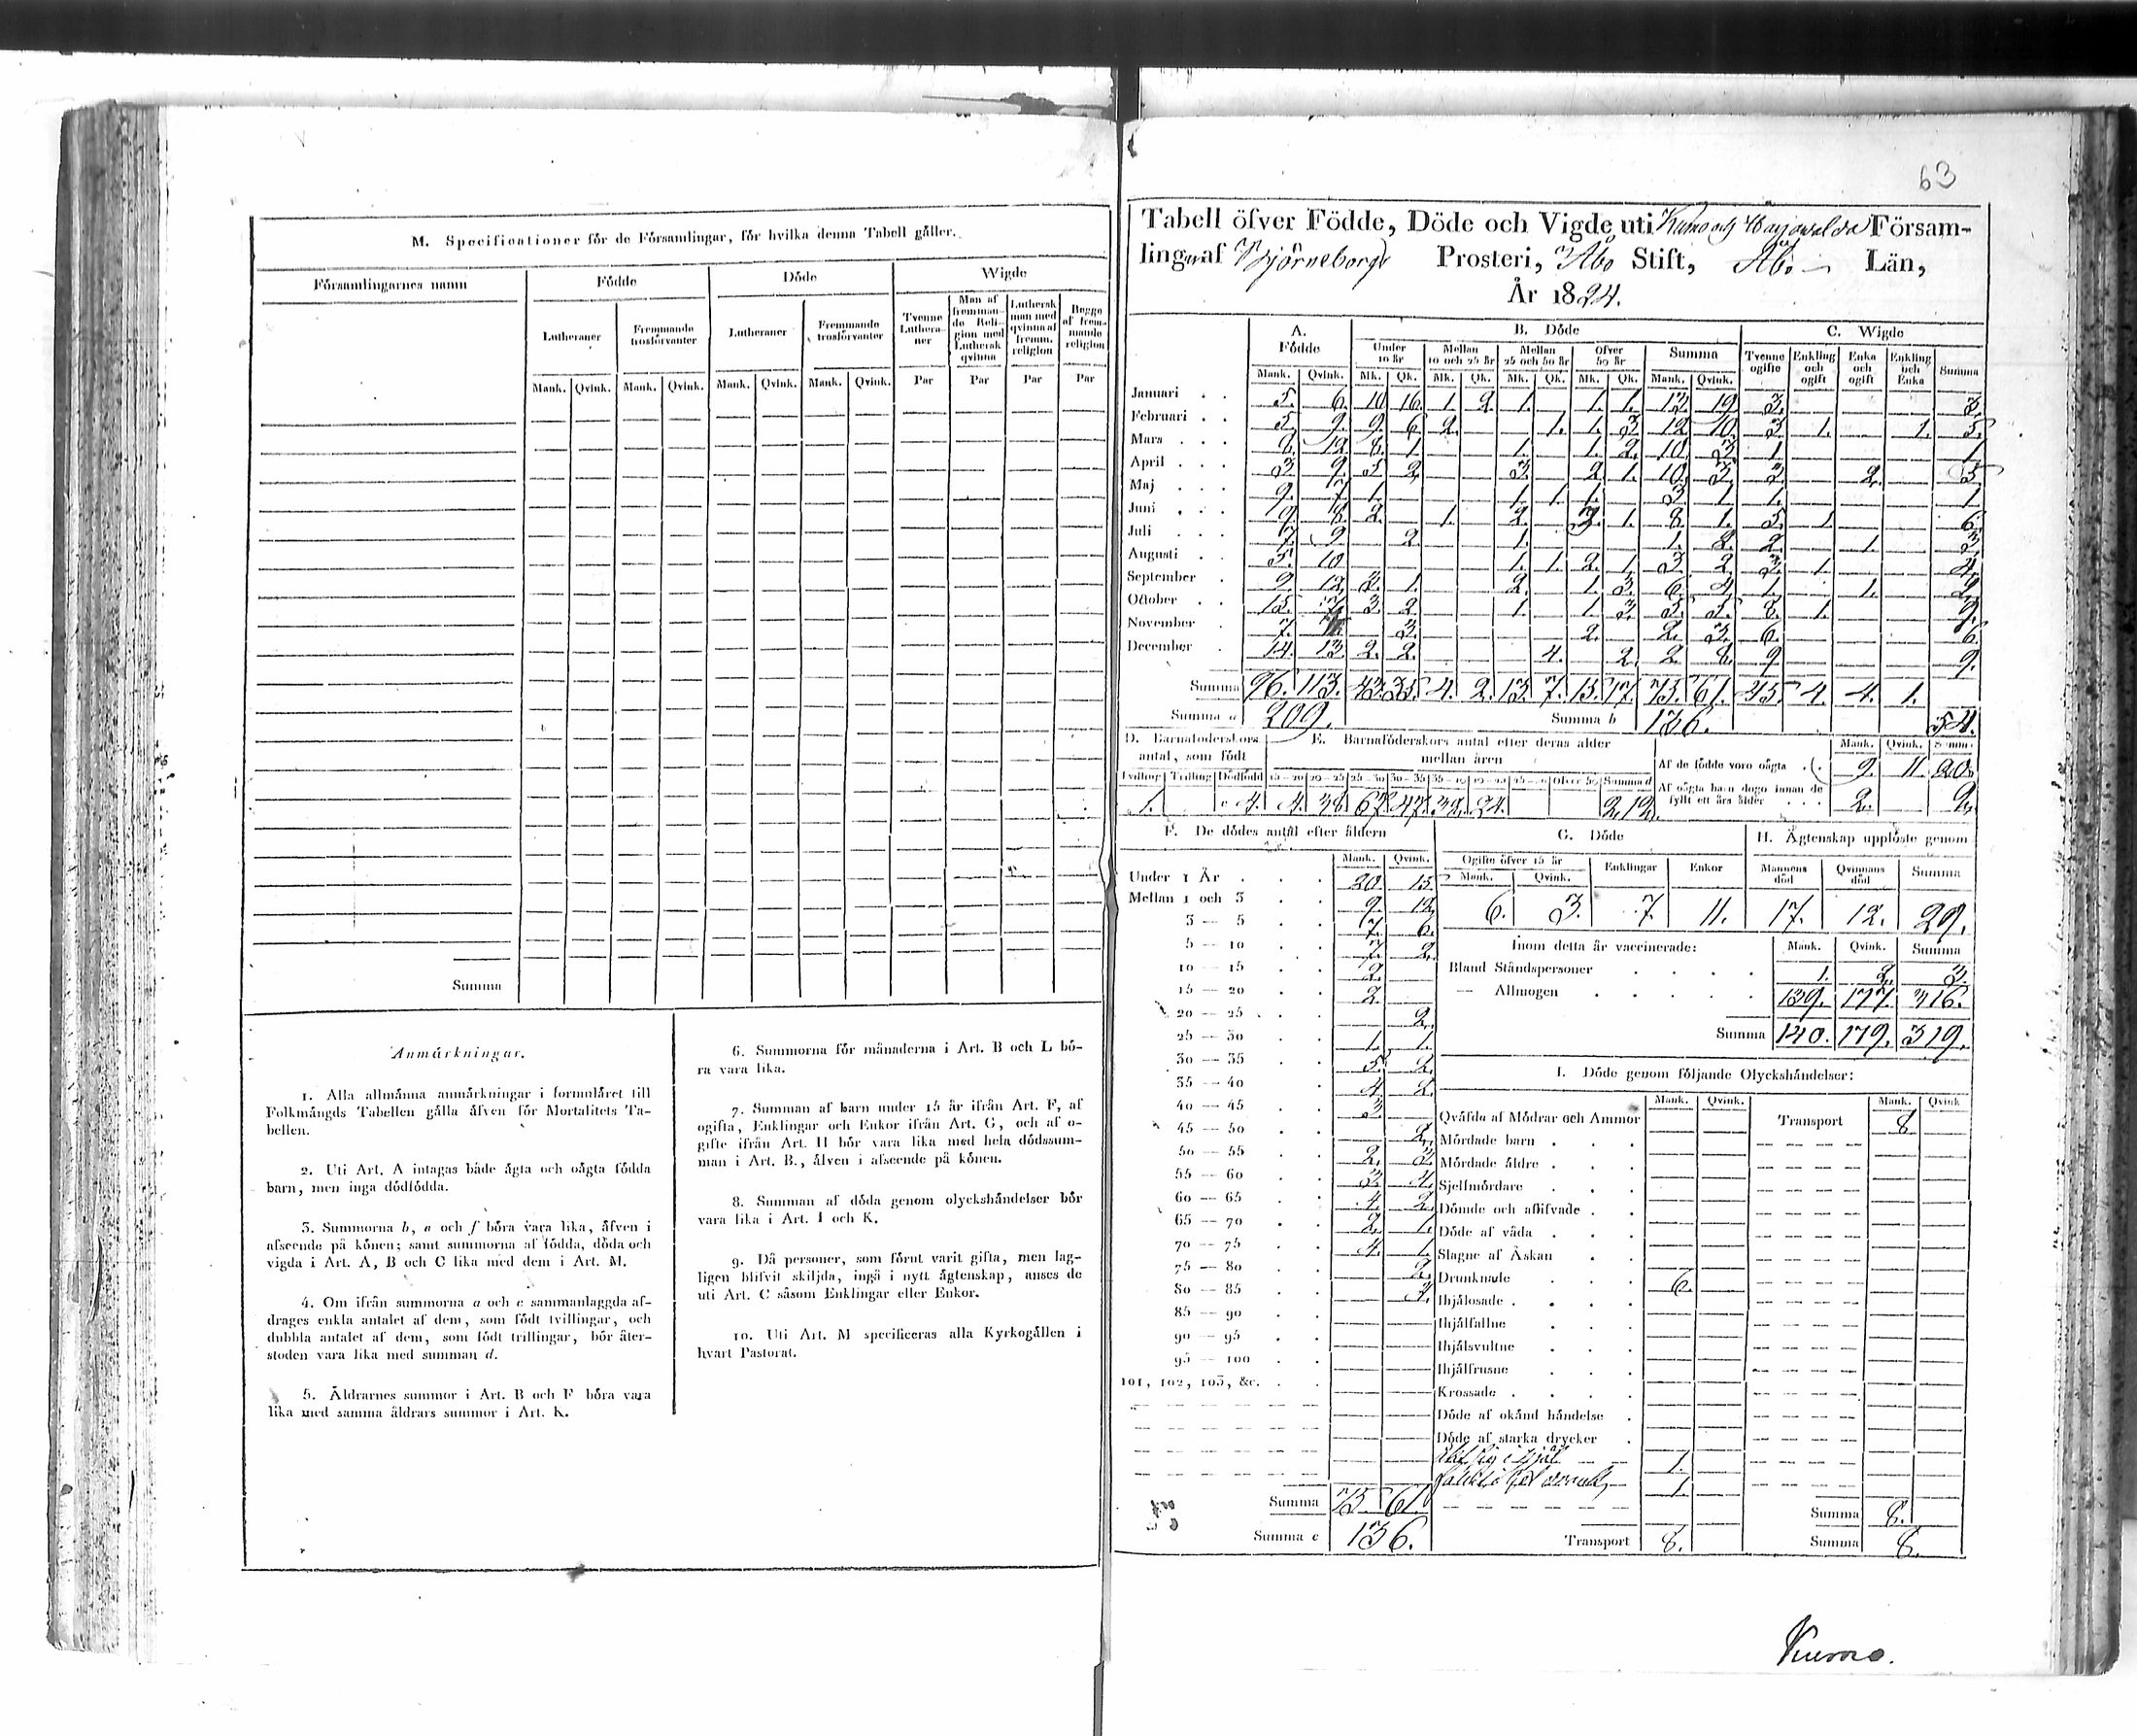 M. Specificationer för de Församlingar, för hvilka denna Tabell gäller.
Församlingarnes namn Födde Döde Wigde
Lutheraner Fremmande trosförvanter Lutheraner Fremmande trosförvanter Tvenne Lutheraner Man af fremmande Religion med Luthersk qvinna Luthersk man med qvinna af fremm. religion Begge af fremmande religion
Mank. Qvink. Mank. Qvink. Mank. Qvink. Mank. Qvink. Par Par Par Par
Summa
Anmärkningar.
1. Alla allmänna anmärkningar i formuläret till
Folkmängds Tabellen gälla äfven för Mortalitets Ta-
bellen.
2. Uti Art. A intagas både ägta och oägta födda
barn, men inga dödfödda.
3. Summorna b, e och f böra vara lika, äfven i
afseende på könen; samt summorna af födda, döda och
vigda i Art. A, B och C lika med dem i Art. M.
4. Om ifrån summorna a och c sammanlaggda af-
drages enkla antalet af dem, som födt tvillingar, och
dubbla antalet af dem, som födt trillingar, bör åter-
stoden vara lika med summan d.
5. Åldrarnes summor i Art. B och F böra vara
lika med samma åldrars summor i Art. K.
6. Summorna för månaderna i Art. B och L bö-
ra vara lika.
7. Summan af barn under 15 år ifrån Art. F, af
ogifta, Enklingar och Enkor ifrån Art. G, och af o-
gifte ifrån Art. H bör vara lika med hela dödssum-
man i Art. B., älven i afseende på könen.
8. Summan af döda genom olyckshändelser bör
vara lika i Art. I och K.
9. Då personer, som förut varit gifta, men lag-
ligen blifvit skiljda, ingå i nytt ägtenskap, anses de
uti Art. C såsom Enklingar eller Enkor.
10. Uti Art. M specificeras alla Kyrkogällen i
hvart Pastorat.
63
Tabell öfver Födde, Döde och Vigde uti Kumo och Försam-
ling af Björneborgs Prosteri, Åbo Stift, Åbo Län,
År 1824.
A. Födde B. Döde C. Wigde
Under 10 år Mellan 10 och 25 år Mellan 25 och 50 år Öfver 50 år Summa Tvenne ogifte Enkling och ogift Enka och ogift Enkling och Enka Summa
Mank. Qvink. Mk. Qk. Mk. Qk. Mk. Qk. Mk. Qk. Mank. Qvink.
Januari 5. 6. 10 16. 1. 2. 1. 1. 1. 13. 19 3. 3.
Februari 5. 9. 9 6 2. 1. 1. 3 12 10. 3 1. 1. 5.
Mars 8. 12 8. 1 1. 1. 2. 10. 3 1 1
April 3 9. 5 2 3. 2 1. 10. 3. 3 2. 5
Maj 9. 7 1. 1 1. 1. 3 1 1. 1
Juni 9. 8. 2. 1. 2. 3. 1. 8. 1. 5. 1 6.
Juli 7. 9 2. 1. 1. 2. 2 1. 3.
Augusti 5. 10 1. 1. 2. 1. 3 2 3. 1 4.
September 9. 12 3. 1. 2. 1. 3. 6. 4. 1. 1. 2.
October 15. 7. 3 2. 1. 1. 3. 5. 5. 8. 1. 9.
November 7. 3. 2. 2. 3. 6. 6.
December 14. 13 2. 2. 4. 2. 2. 8. 9 9.
Summa 96. 113. 43. 35. 4. 2. 13. 7. 15. 17. 75. 61. 45. 4. 4. 1.
Summa a 209. Summa b 136. 54.
D. Barnaföderskors antal, som födt
E. Barnaföderskors antal efter deras ålder mellan åren
Mank. Qvink. Summa
Tvilling Trilling Dödfödd 15 - 20 20 - 25 25 - 30 30 - 35 35 - 40 Öfver 50 Summa d
1. 4. 4. 38 67. 47. 32. 24. 212.
Af de födde voro oägta 9. 11. 20.
Af oägta barn dogo innan de
fyllt ett års ålder 2. 2.
F. De dödes antal efter åldern
Mank. Qvink.
Under 1 År 20 15
Mellan 1 och 3 9. 12
3 — 5 7. 6.
5 — 10 7 2.
10 — 15 2.
15 — 20 2.
20 — 25 2.
25 — 30 1. 1.
30 — 35 5 2.
35 — 40 4 2.
40 — 45 3
45 — 50 2.
50 — 55 2. 3.
55 — 60 3 4.
60 — 65 4. 2.
65 — 70 2. 1.
70 — 75 4. 1.
75 — 80 2.
80 — 85 4.
85 — 90
90 — 95
95 — 100
101, 102, 103, &c.
Summa 75 61.
Summa e 136.
G. Döde
Ogifte öfver 15 år Enklingar Enkor
Mank. Qvink.
6. 3. 7. 11.
H. Ägtenskap upplöste genom
Mannens död Qvinnans död Summa
17. 12. 29.
Inom detta år vaccinerade: Mank. Qvink. Summa
Bland Ståndspersoner 1. 2. 3.
— Allmogen 139. 177. 316.
Summa 140. 179. 319.
I. Döde genom följande Olyckshändelser:
Mank. Qvink. Mank. Qvink
Qväfde af Mödrar och Ammor Transport 8
Mördade barn
Mördade äldre
Sjelfmördare
Dömde och aflifvade
Döde af våda
Slagne af Åskan
Drunknade 6.
Ihjälosade
Ihjälfallne
Ihjälsvultne
Ihjälfrusne
Krossade
Döde af okänd händelse
Döde af starka drycker
1.
1.
Summa 8.
Transport 8. Summa 8.
Kumo.